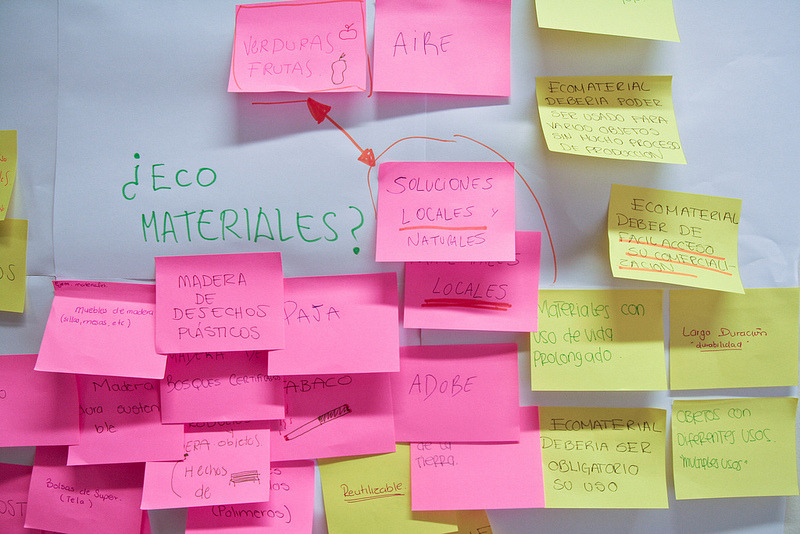 VERDURAS
FRUTAS
AIRE
ECOMATERIAL
DEBERIA PODER
SER USADO PARA
VARIOS OBJETOS
SIN MUCHO PROCESO
DE PRODUCCION
¿ECO
MATERIALES?
SOLUCIONES
LOCALES Y
NATURALES
ECOMATERIAL
DEBER DE
FACIL ACCESO
SU COMERCIALI-
ZACION
LOCALES
MADERA
DE
DESECHOS
PLÁSTICOS
Muebles de madera
(sillas, mesas, etc)
PAJA
Materiales con
uso de vida
Prolongado
Largo Duración
"durabilidad"
BOSQUES
Madera
ADOBE
ECOMATERIAL
DEBERIA SER
OBLIGATORIO
SU USO
OBJETOS CON
DIFERENTES USOS.
"MULTIPLES USOS"
objetos
Hechos
de
DE LA
TIERRA.
Bolsas de Super.
(Tela)
Reutilizable
(Polimeros)